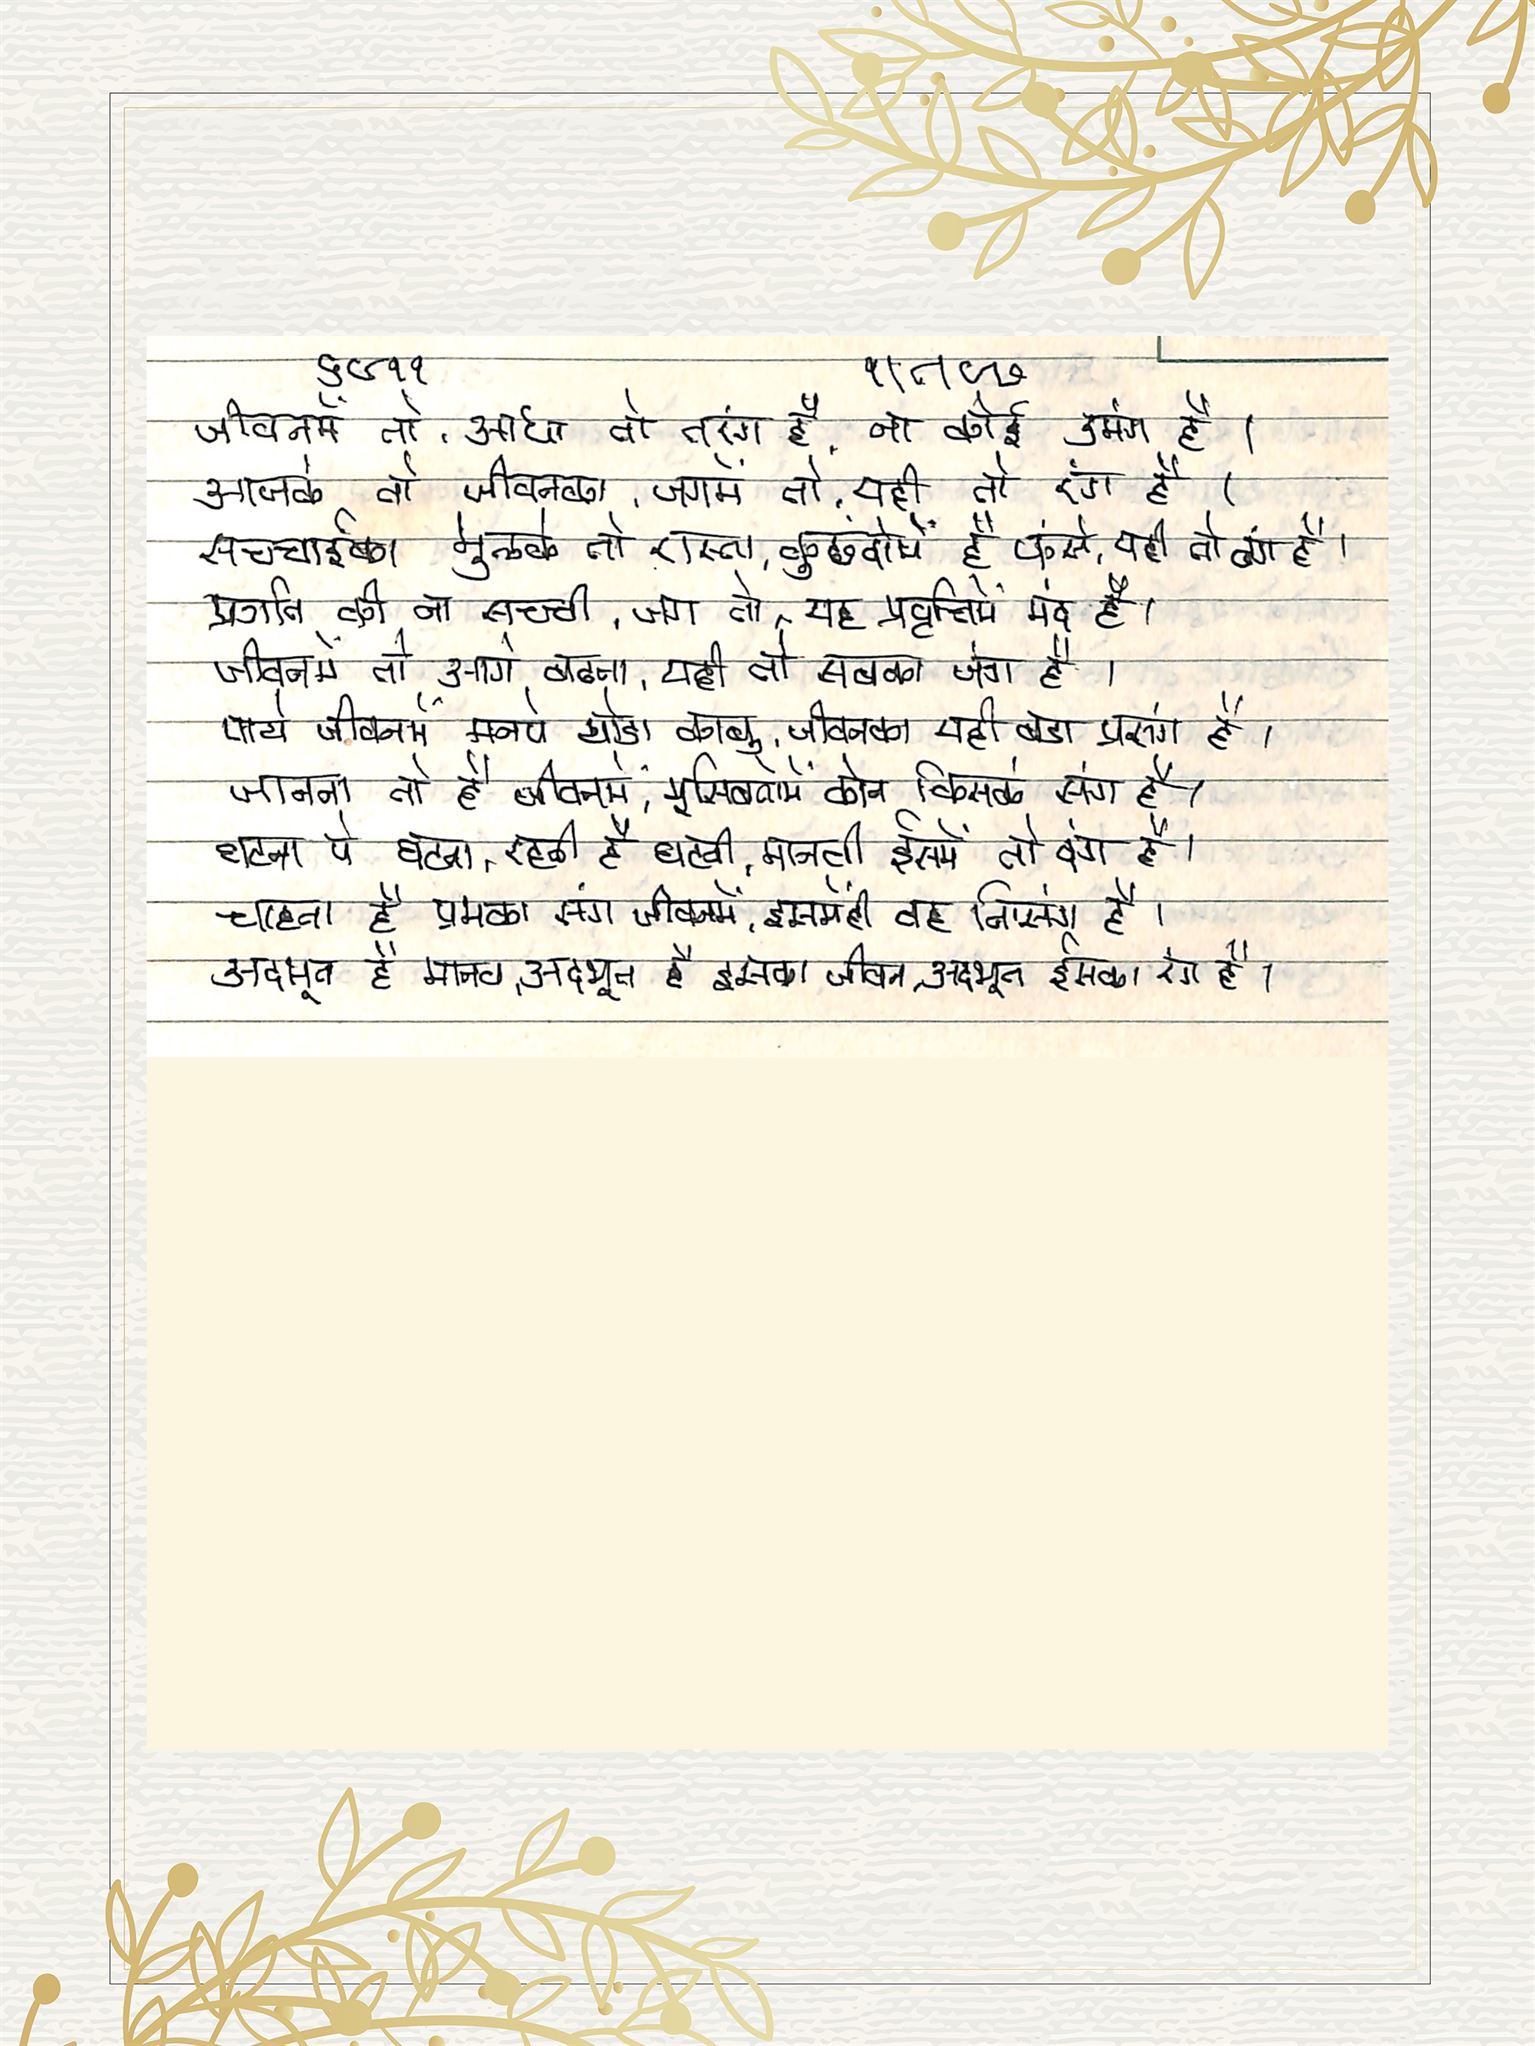 जीवनमें तो, आधा वो तरंग है, ना कोई उमंग है ।
आजके तो जीवनका, जगमें तो, यही तो रंग है ।
सच्चाईका भुलके तो रास्ता, है फंसे, यही तो ढंग है ।
प्रगति की ना सच्ची, जग तो, यह प्रवृत्तिमें मंद है ।
जीवनमें तो आगे बढना, यही तो सबका जंग है ।
पाये जीवनमें मनपे थोडा काबु, जीवनका यही बडा प्रसंग है ।
जानना तो है जीवनमें, मूसिबतोमें कोन किसके संग है ।
घटना पे घटना, रहती है घटती, मानली ईसमें तो है ।
चाहता है प्रेमका संग जीवनमें, इसमेंही वह निसंग है ।
अदभूत है मानव, अदभूत है इसका जीवन, अदभूत ईसका रंग है ।